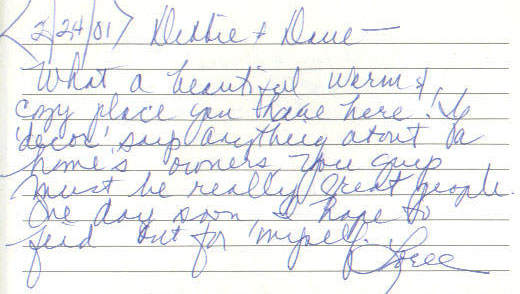 <2/24/01> Debbie + Dave —
What a beautiful warm &
cozy place you have here! If
'decor' says anything about a
home's owners, you guys
must be really great people.
One day soon, I hope to
find out for myself.
Loree